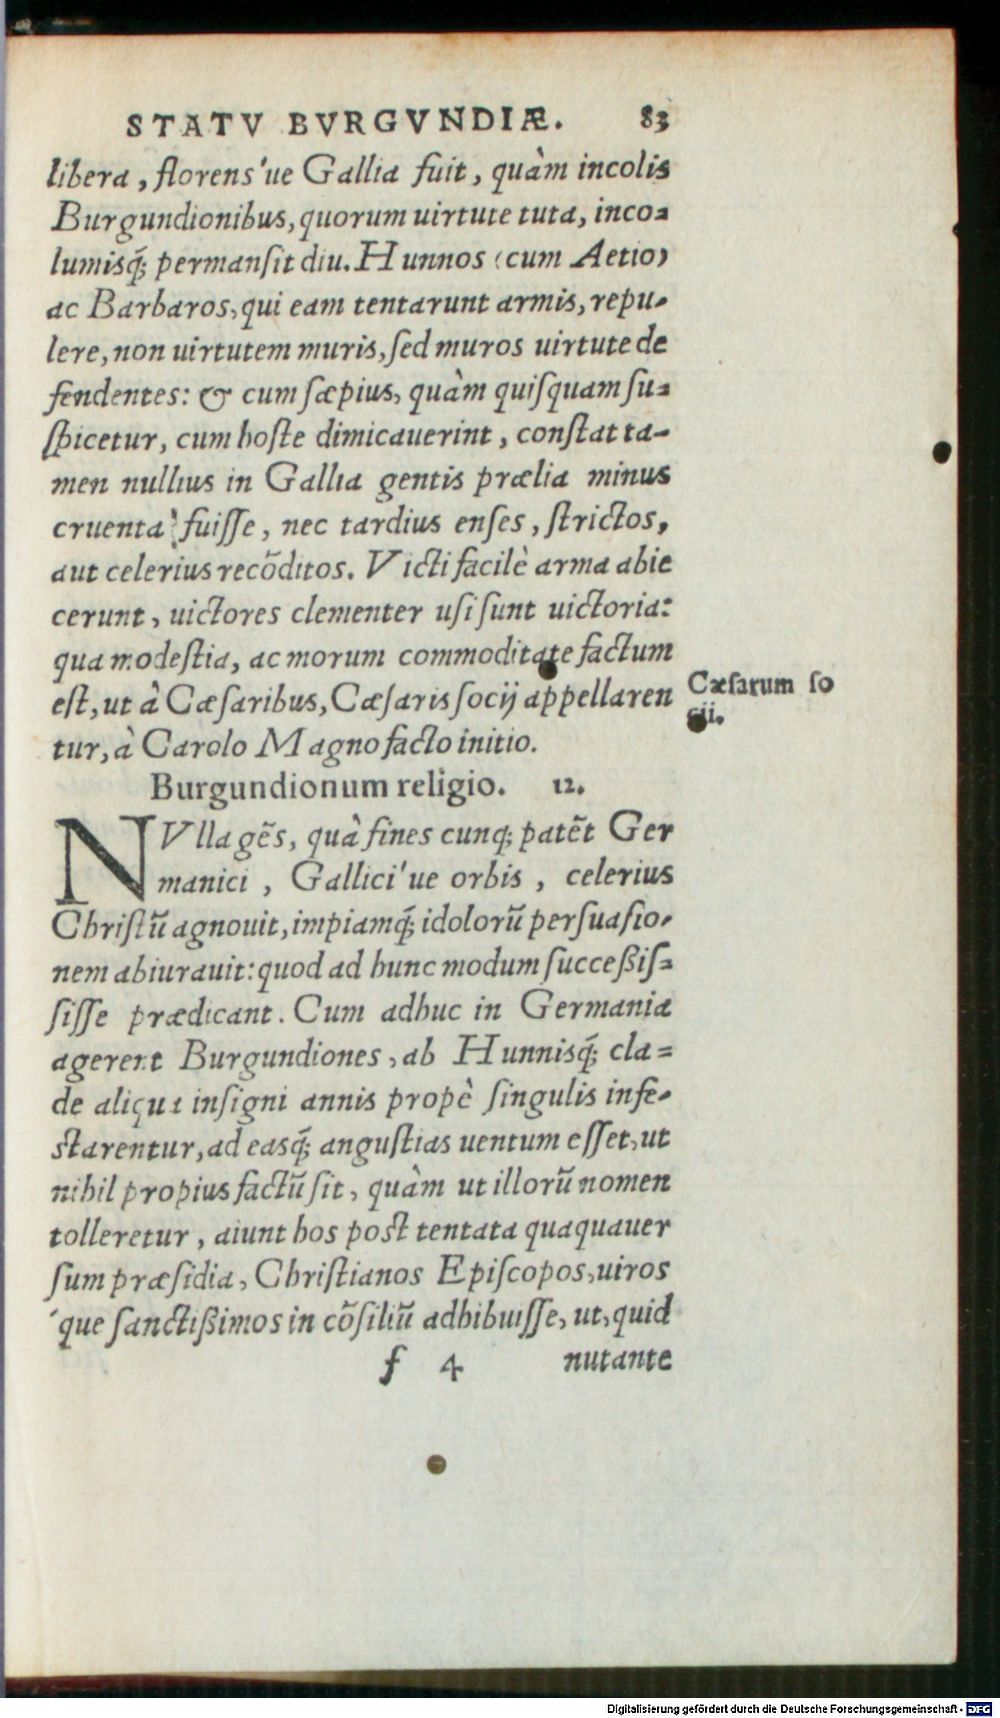 STATV BVRGVNDIÆ. 83
libera, florens'ue Gallia fuit, quàm incolis
Burgundionibus, quorum uirtute tuta, inco-
lumisq́; permanſit diu. Hunnos (cum Aetio)
ac Barbaros, qui eam tentarunt armis, repu-
lere, non uirtutem muris, ſed muros uirtute de
fendentes: & cum ſæpius, quàm quiſquam ſu-
ſpicetur, cum hoſte dimicauerint, conſtat ta-
men nullius in Gallia gentis prælia minus
cruenta fuiſſe, nec tardius enſes, ſtrictos,
aut celerius recõditos. Victi facilè arma abie
cerunt, uictores clementer uſi ſunt uictoria:
qua modeſtia, ac morum commoditate factum
eſt, ut à Cæſaribus, Cæſaris ſocij appellaren
tur, à Carolo Magno facto initio.
Cæſarum ſo
cii.
Burgundionum religio. 12.
NVlla gẽs, quà fines cunq; patẽt Ger
manici, Gallici'ue orbis, celerius
Chriſtũ agnouit, impiamq́; idolorũ perſuaſio-
nem abiurauit: quod ad hunc modum ſucceßiſ-
ſiſſe prædicant. Cum adhuc in Germania
agerent Burgundiones, ab Hunnisq́; cla-
de aliqua inſigni annis propè ſingulis infe-
ſtarentur, ad easq́; anguſtias uentum eſſet, ut
nihil propius factũ ſit, quàm ut illorũ nomen
tolleretur, aiunt hos poſt tentata quaquauer
ſum præſidia, Chriſtianos Epiſcopos, uiros
'que ſanctißimos in cõſiliũ adhibuiſſe, ut, quid
f 4 nutante
Digitalisierung gefördert durch die Deutsche Forschungsgemeinschaft - DFG